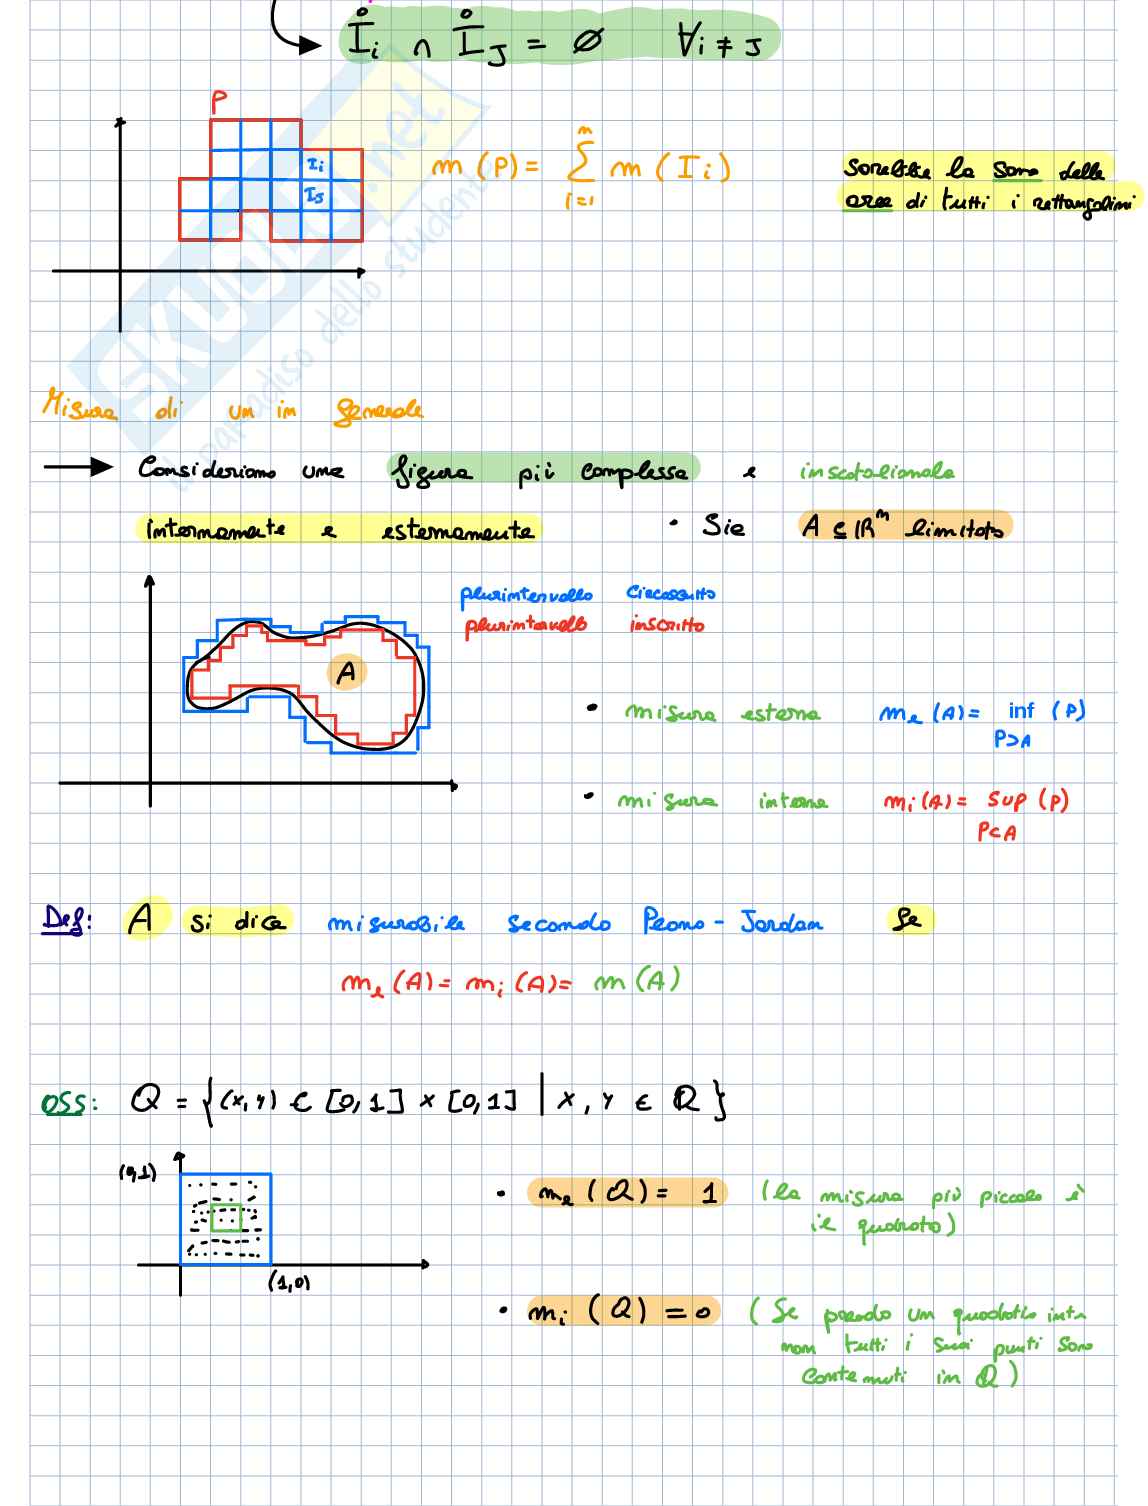 İᵢ ∩ İⱼ = ∅ ∀i ≠ j
P
Iᵢ
Iⱼ
m (P) = ∑ m (Iᵢ)
n
i=1
Sarebbe la somma delle
aree di tutti i rettangolini
SKUOLA.net
il paradiso dello studente
Misura di un in generale
Consideriamo una figura più complessa e inscatoliamola
internamente e esternamente • Sia A ⊆ ℝⁿ limitato
plurintervallo circoscritto
plurintervallo inscritto
A
• misura esterna mₑ (A) = inf (P)
P⊃A
• misura interna mᵢ (A) = sup (P)
P⊂A
Def: A si dice misurabile secondo Peano - Jordan se
mₑ (A) = mᵢ (A) = m (A)
OSS: Q = {(x, y) ∈ [0,1] x [0,1] | x, y ∈ ℚ}
(0,1)
(1,0)
• mₑ (Q) = 1 (la misura più piccola è
il quadrato)
• mᵢ (Q) = 0 (Se prendo un quadratino int.
non tutti i suoi punti sono
contenuti in Q)